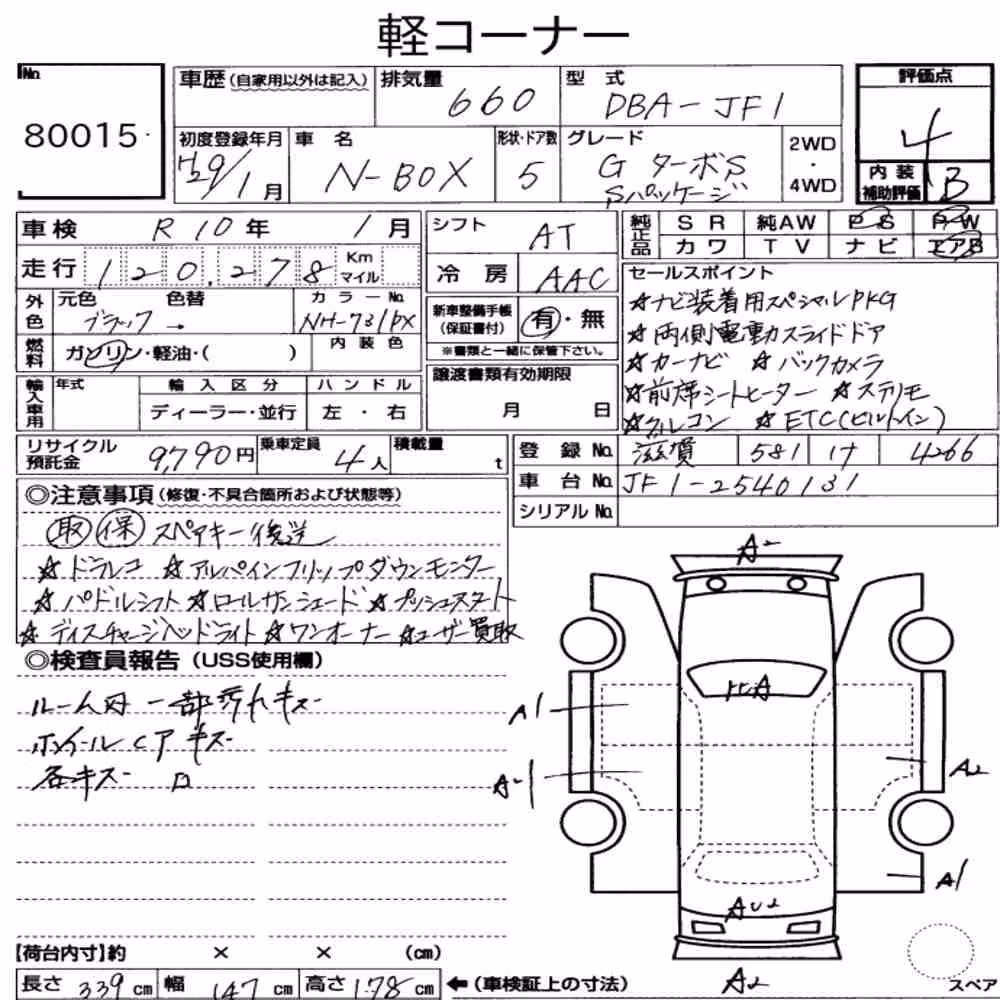 軽コーナー
No. 80015
車歴 (自家用以外は記入) 排気量 660 型式 DBA-JF1 評価点 4
初度登録年月 H29/1月 車名 N-BOX 形状・ドア数 5 グレード Gターボ S Sパッケージ 2WD・4WD 内装補助評価 B
車検 R10年 1月 シフト AT 純正品 SR 純AW PS PW
カワ TV ナビ エアB
走行 120,278 Km マイル 冷房 AAC
外色 元色 ブラック 色替 → カラーNo. NH-731PX 内装色
新車整備手帳(保証書付) 有・無
※書類と一緒に保管下さい。
燃料 ガソリン・軽油・( )
輸入車用 年式 輸入区分 ディーラー・並行 ハンドル 左・右
譲渡書類有効期限 月 日
セールスポイント
☆ナビ装着用スペシャルPKG
☆両側電動スライドドア
☆カーナビ ☆バックカメラ
☆前席シートヒーター ☆ステリモ
☆クルコン ☆ETC(ビルトイン)
リサイクル預託金 9,790円 乗車定員 4人 積載量 t
登録No. 滋賀 581 け 4266
車台No. JF1-2540131
シリアルNo.
◎注意事項 (修復・不具合箇所および状態等)
取 保 スペアキー後送
☆ドラレコ ☆アルパインフリップダウンモニター
☆パドルシフト ☆ロールサンシェード ☆プッシュスタート
☆ディスチャージヘッドライト ☆ワンオーナー ☆ユーザー買取
◎検査員報告 (USS使用欄)
ルーム内 一部汚れキズ
ホイールCアキズ
各キズ
A2
A1
A1
A2
A1
AU2
A2
スペア
【荷台内寸】約 × × (cm)
長さ 339cm 幅 147cm 高さ 178cm ←(車検証上の寸法)